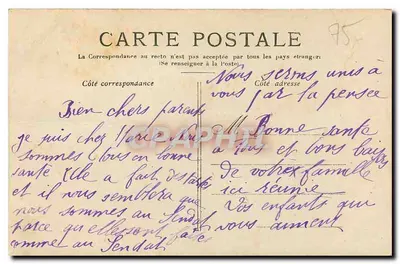 CARTE POSTALE
La Correspondance au recto n'est pas acceptée par tous les pays étrangers
(Se renseigner à la Poste)
Côté correspondance
Côté adresse
75
Bien chers parents
je puis cher
sommes tous en bonne
santé Elle a fait des tartes
et il nous semblera que
nous sommes au Sendat
parce qu'elles sont faites
comme au Sendat
Nous serons unis à
vous par la pensée
Bonne santé
à tous et bons baisers
de votre famille
ici réunie
Vos enfants qui
vous aiment